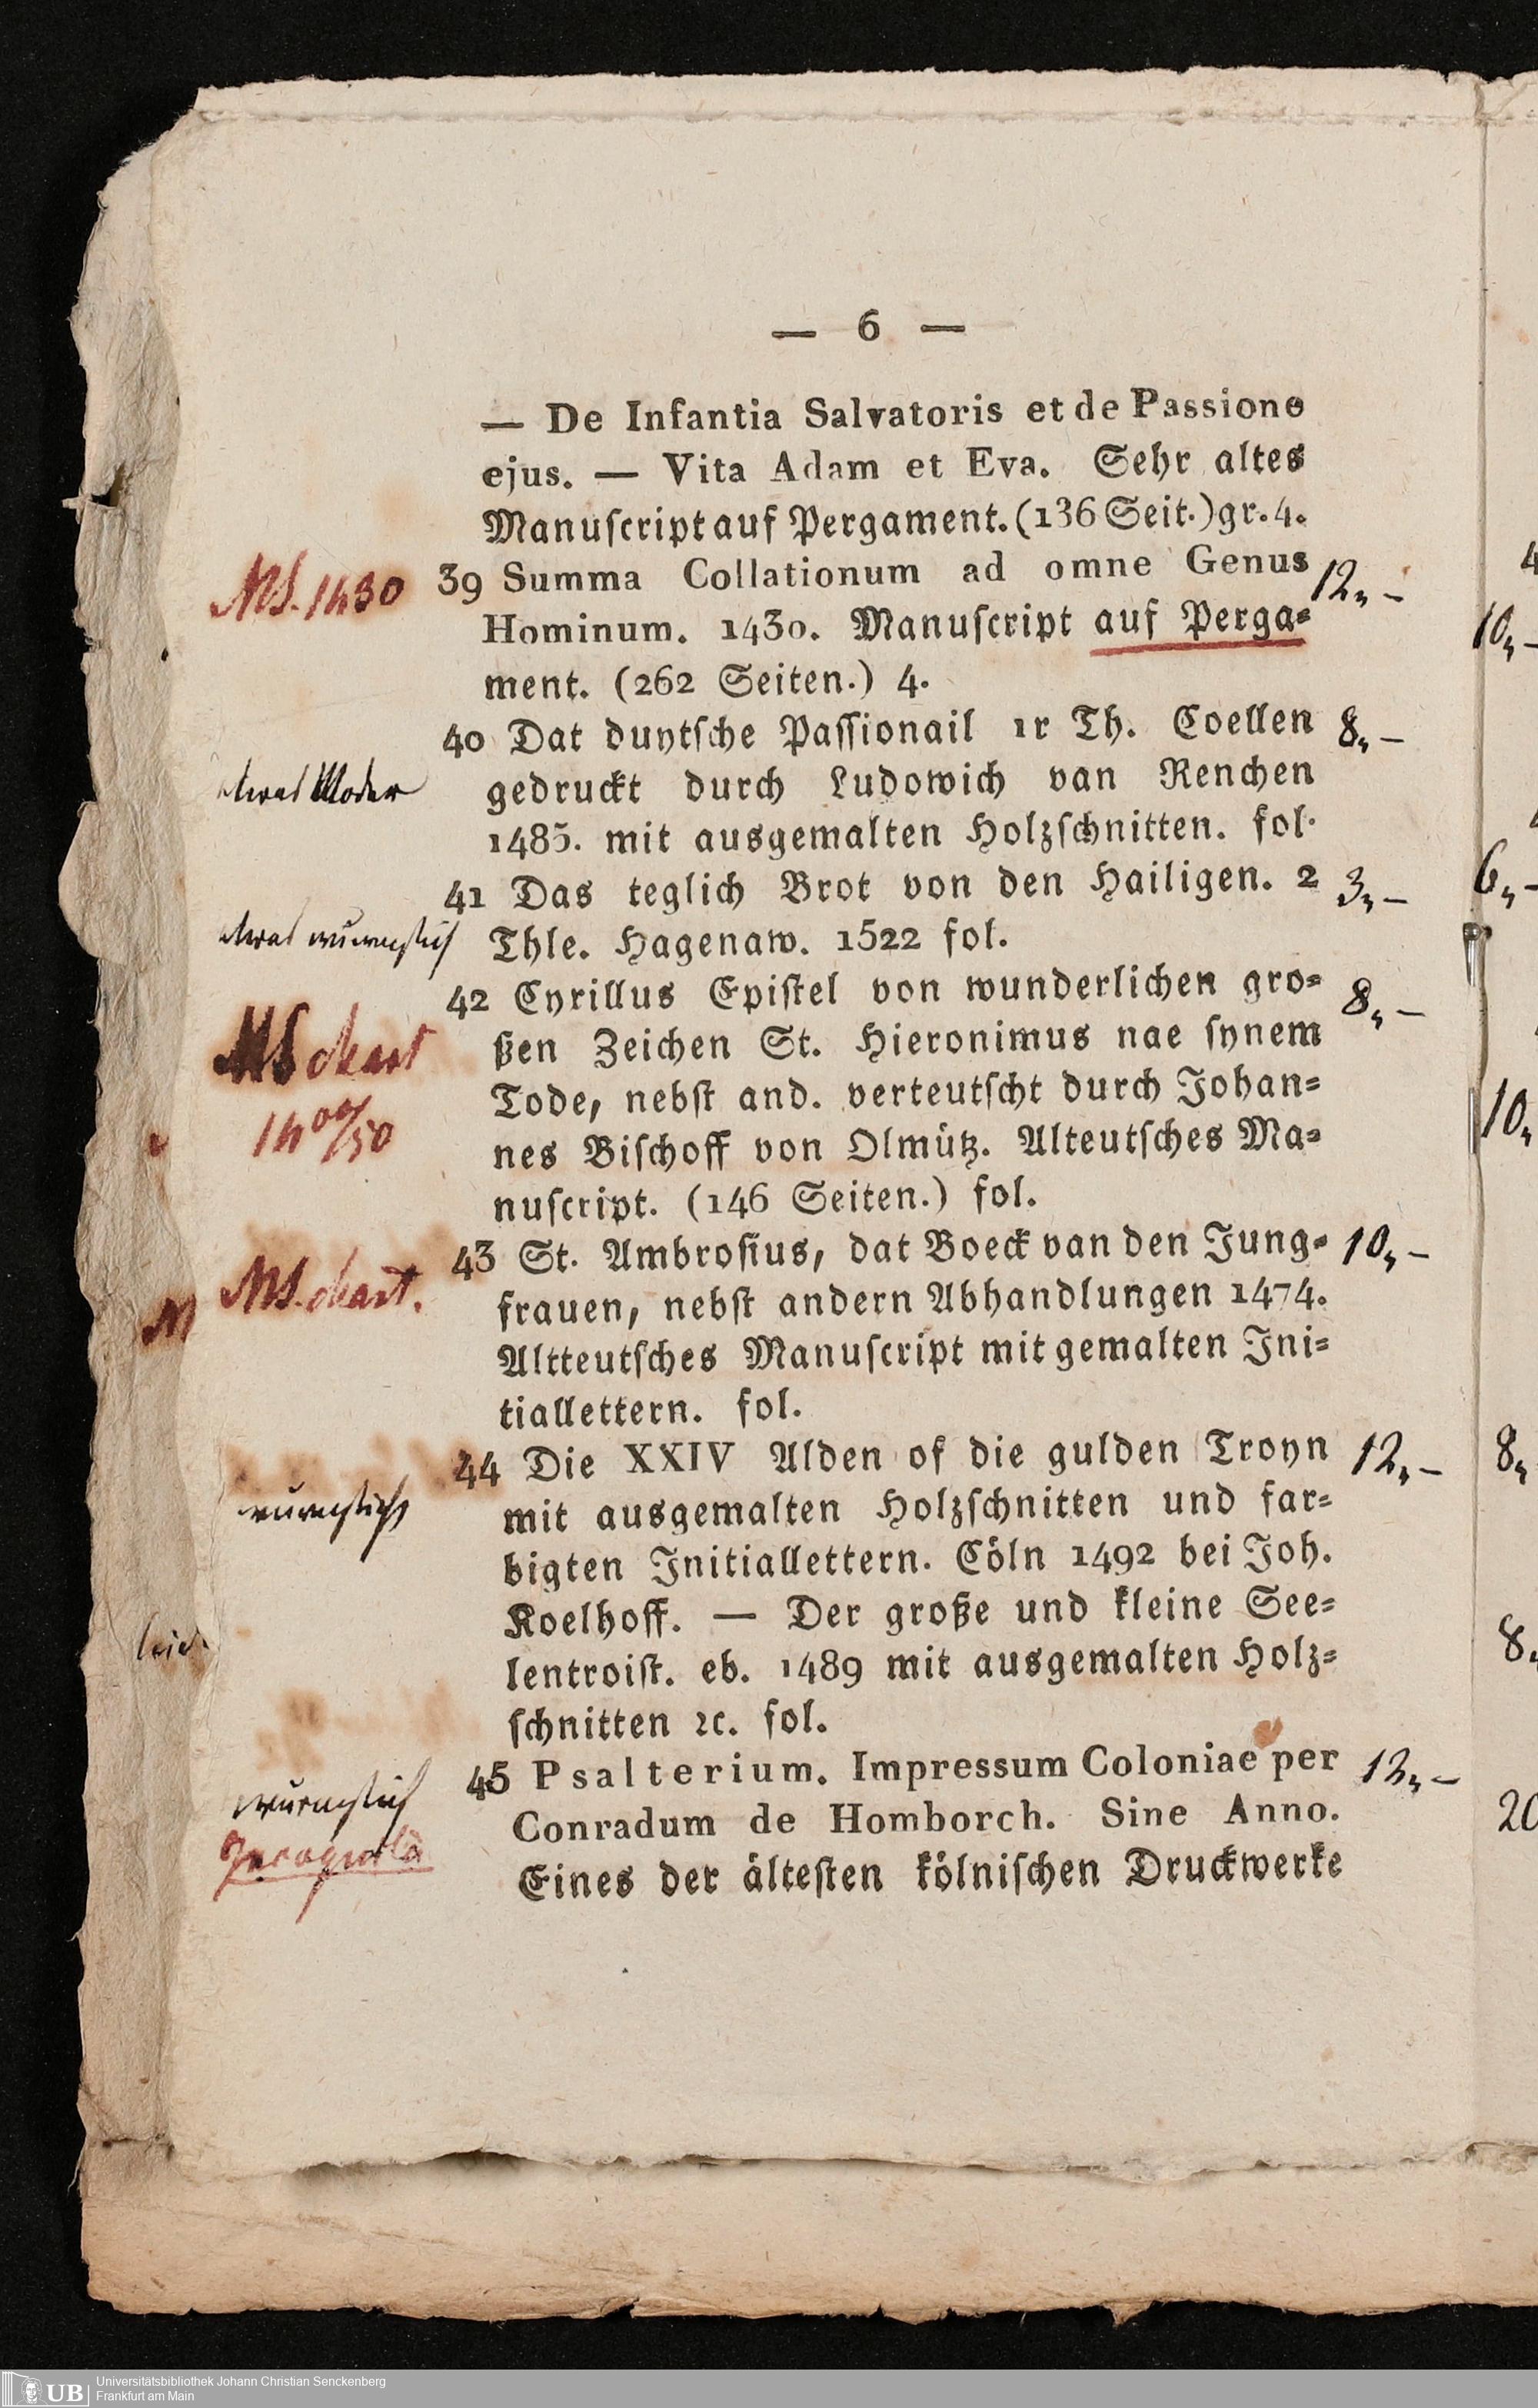 — 6 —
— De Infantia Salvatoris et de Passione
ejus. — Vita Adam et Eva. Sehr altes
Manuſcript auf Pergament. (136 Seit.) gr. 4.
MS. 1430
39 Summa Collationum ad omne Genus
12„ —
Hominum. 1430. Manuſcript auf Perga⸗
ment. (262 Seiten.) 4.
40 Dat duytſche Paſſionail 1r Th. Coellen
8„ —
etwas Moder
gedruckt durch Ludowich van Renchen
1485. mit ausgemalten Holzſchnitten. fol.
41 Das teglich Brot von den Hailigen. 2
3„ —
etwas wurmstich
Thle. Hagenaw. 1522 fol.
42 Cyrillus Epiſtel von wunderlichen gro⸗
8„ —
MS chart
ßen Zeichen St. Hieronimus nae ſynem
1400/50
Tode, nebſt and. verteutſcht durch Johan⸗
nes Biſchoff von Olmütz. Alteutſches Ma⸗
nuſcript. (146 Seiten.) fol.
43 St. Ambroſius, dat Boeck van den Jung⸗
10„ —
MS. chart.
frauen, nebſt andern Abhandlungen 1474.
Altteutſches Manuſcript mit gemalten Ini⸗
tiallettern. fol.
44 Die XXIV Alden of die gulden Troyn
12„ —
wurmstich
mit ausgemalten Holzſchnitten und far⸗
bigten Initiallettern. Cöln 1492 bei Joh.
Koelhoff. — Der große und kleine See⸗
lentroiſt. eb. 1489 mit ausgemalten Holz⸗
ſchnitten ꝛc. fol.
45 Psalterium. Impressum Coloniae per
12„ —
wurmstich
Conradum de Homborch. Sine Anno.
Eines der älteſten kölniſchen Druckwerke
4
10„ —
6„ —
10„
8„
8„
20
UB
Universitätsbibliothek Johann Christian Senckenberg
Frankfurt am Main